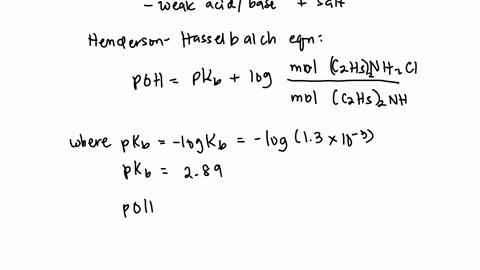 - weak acid/base + salt
Henderson-Hasselbalch eqn:
pOH = pKb + log mol (C2H5)2NH2Cl / mol (C2H5)2NH
where pKb = -logKb = -log (1.3 × 10^-3)
pKb = 2.89
pOH